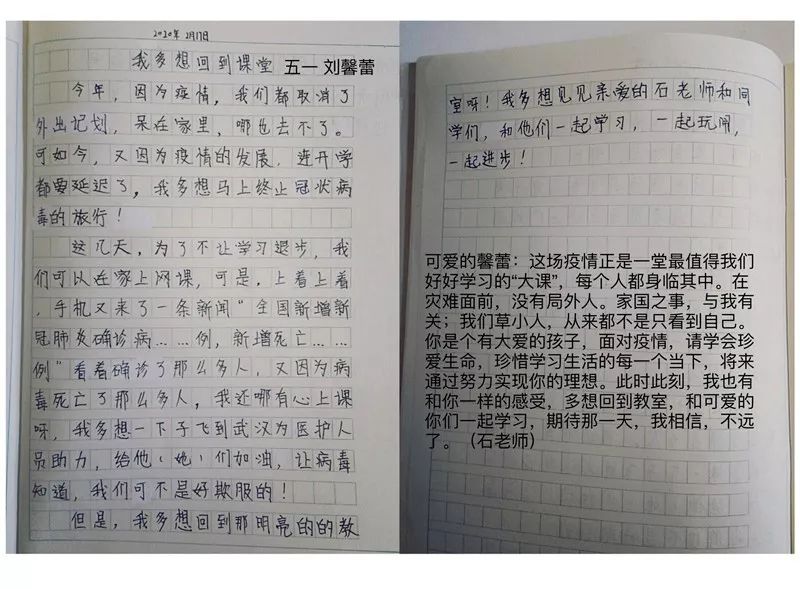 2020年2月17日
我多想回到课堂 五一 刘馨蕾
今年，因为疫情，我们都取消了
外出记划，呆在家里，哪也去不了。
可如今，又因为疫情的发展，连开学
都要延迟了，我多想马上终止冠状病
毒的旅行！
这几天，为了不让学习退步，我
们可以在家上网课，可是，上着上着
，手机又来了一条新闻“全国新增新
冠肺炎确诊病……例，新增死亡……
例”看着确诊了那么多人，又因为病
毒死亡了那么多人，我还哪有心上课
呀，我多想一下子飞到武汉为医护人
员助力，给他（她）们加油，让病毒
知道，我们可不是好欺服的！
但是，我多想回到那明亮的的教
室呀！我多想见见亲爱的石老师和同
学们，和他们一起学习，一起玩闹，
一起进步！
可爱的馨蕾：这场疫情正是一堂最值得我们
好好学习的“大课”，每个人都身临其中。在
灾难面前，没有局外人。家国之事，与我有
关；我们草小人，从来都不是只看到自己。
你是个有大爱的孩子，面对疫情，请学会珍
爱生命，珍惜学习生活的每一个当下，将来
通过努力实现你的理想。此时此刻，我也有
和你一样的感受，多想回到教室，和可爱的
你们一起学习，期待那一天，我相信，不远
了。（石老师）